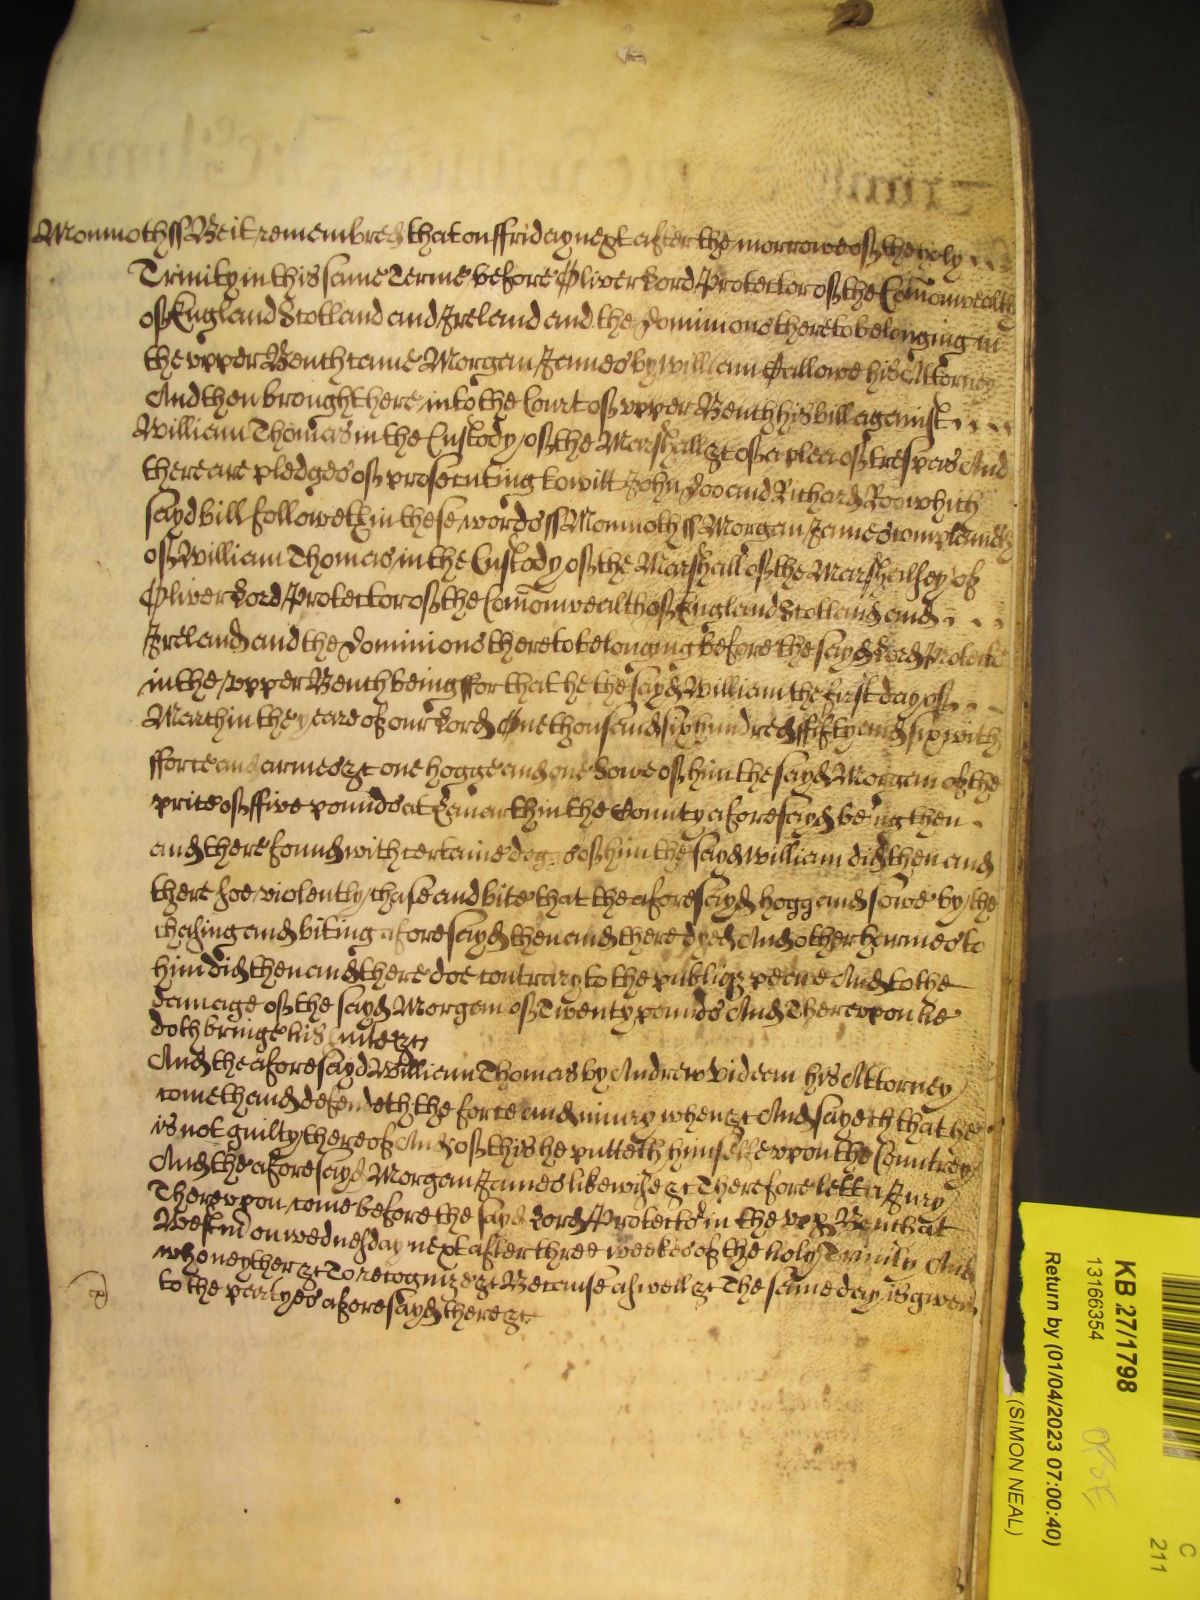 Monmoth ss Be it remembred that on ffriday next after the morrowe of the holy
Trinity in this same Terme before Oliver Lord Protector of the Com̄onwealth
of England Scotland and Ireland and the Dominions thereto belonging in
the upper Bench came Morgan James by William Callowe his Attorney
And then brought here into the Court of upper Bench his bill against
William Thomas in the Custody of the Marshall &c of a plea of trespas And
there are pledges of prosecuting to witt John Doo and Richard Roo which
sayd bill followeth in these words ss Monmoth ss Morgan James complaineth
of William Thomas in the Custody of the Marshall of the Marshalsey of
Oliver Lord Protector of the Com̄onwealth of England Scotland and
Ireland and the Dominions thereto belonging before the sayd Lord Protector
in the upper Bench being ffor that he the sayd William the first day of
March in the yeare of our Lord One thousand six hundred ffifty and six with
fforce and armes &c one hogge and one Sowe of him the sayd Morgan of the
price of ffive pounds at in the County aforesayd being then
and there found with certaine dogs of him the sayd William did then and
there soe violently chase and bite that the aforesayd hogg and sowe by the
chasing and biting aforesayd then and there dyed And other harmes to
him did then and there doe contrary to the publiq peace And to the
damage of the sayd Morgan of Twenty pounds And Thereupon he
doth bringe his suite &c
And the aforesayd William Thomas by Andrew Videan his Attorney
cometh and defendeth the force and iniury when &c And sayeth that he
is not guilty thereof And of this he putteth himselfe upon the Countrey
And the aforesayd Morgan James likewise &c Therefore lett a Jury
Thereupon come before the sayd Lord Protector in the upp Bench at
Westm̄ on wednesday next after three weekes of the holy Trinity And
who neyther &c To recognize &c Because aswell &c The same day is given
to the partyes aforesayd there &c
KB 27/1798
13166354
Return by (01/04/2023 07:00:40)
(SIMON NEAL)
C
211